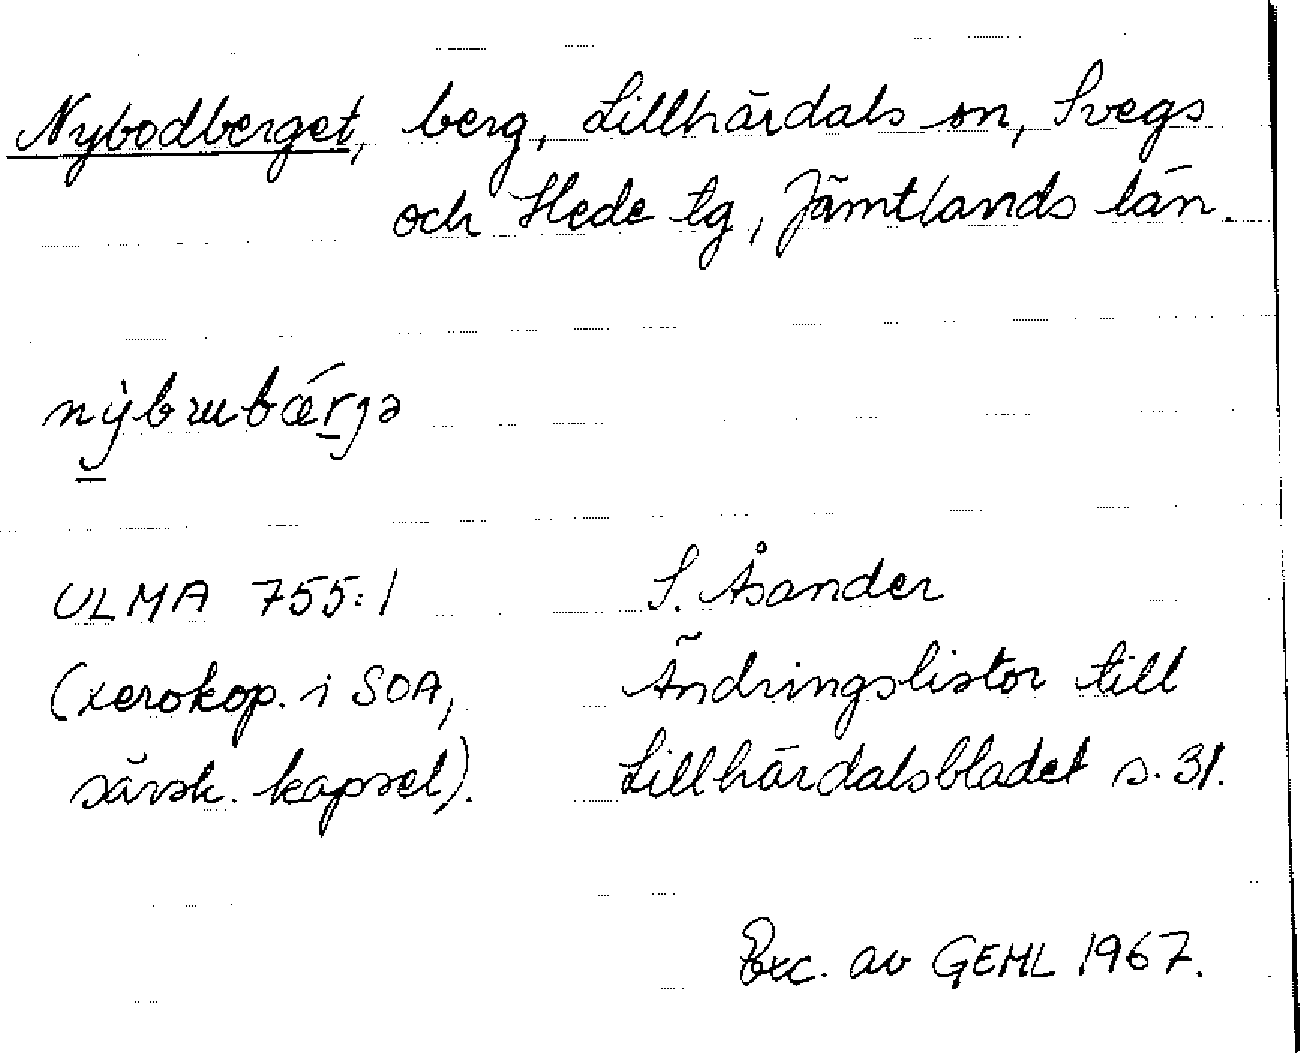 Nybodberget, berg, Lillhärdals sn, Svegs
och Hede tg, Jämtlands län.
nỳbwubǽrjə
ULMA 755:1
(xerokop. i SOA,
särsk. kapsel).
S. Åsander
Ändringslistor till
Lillhärdalsbladet s. 31.
Exc. av GEHL 1967.